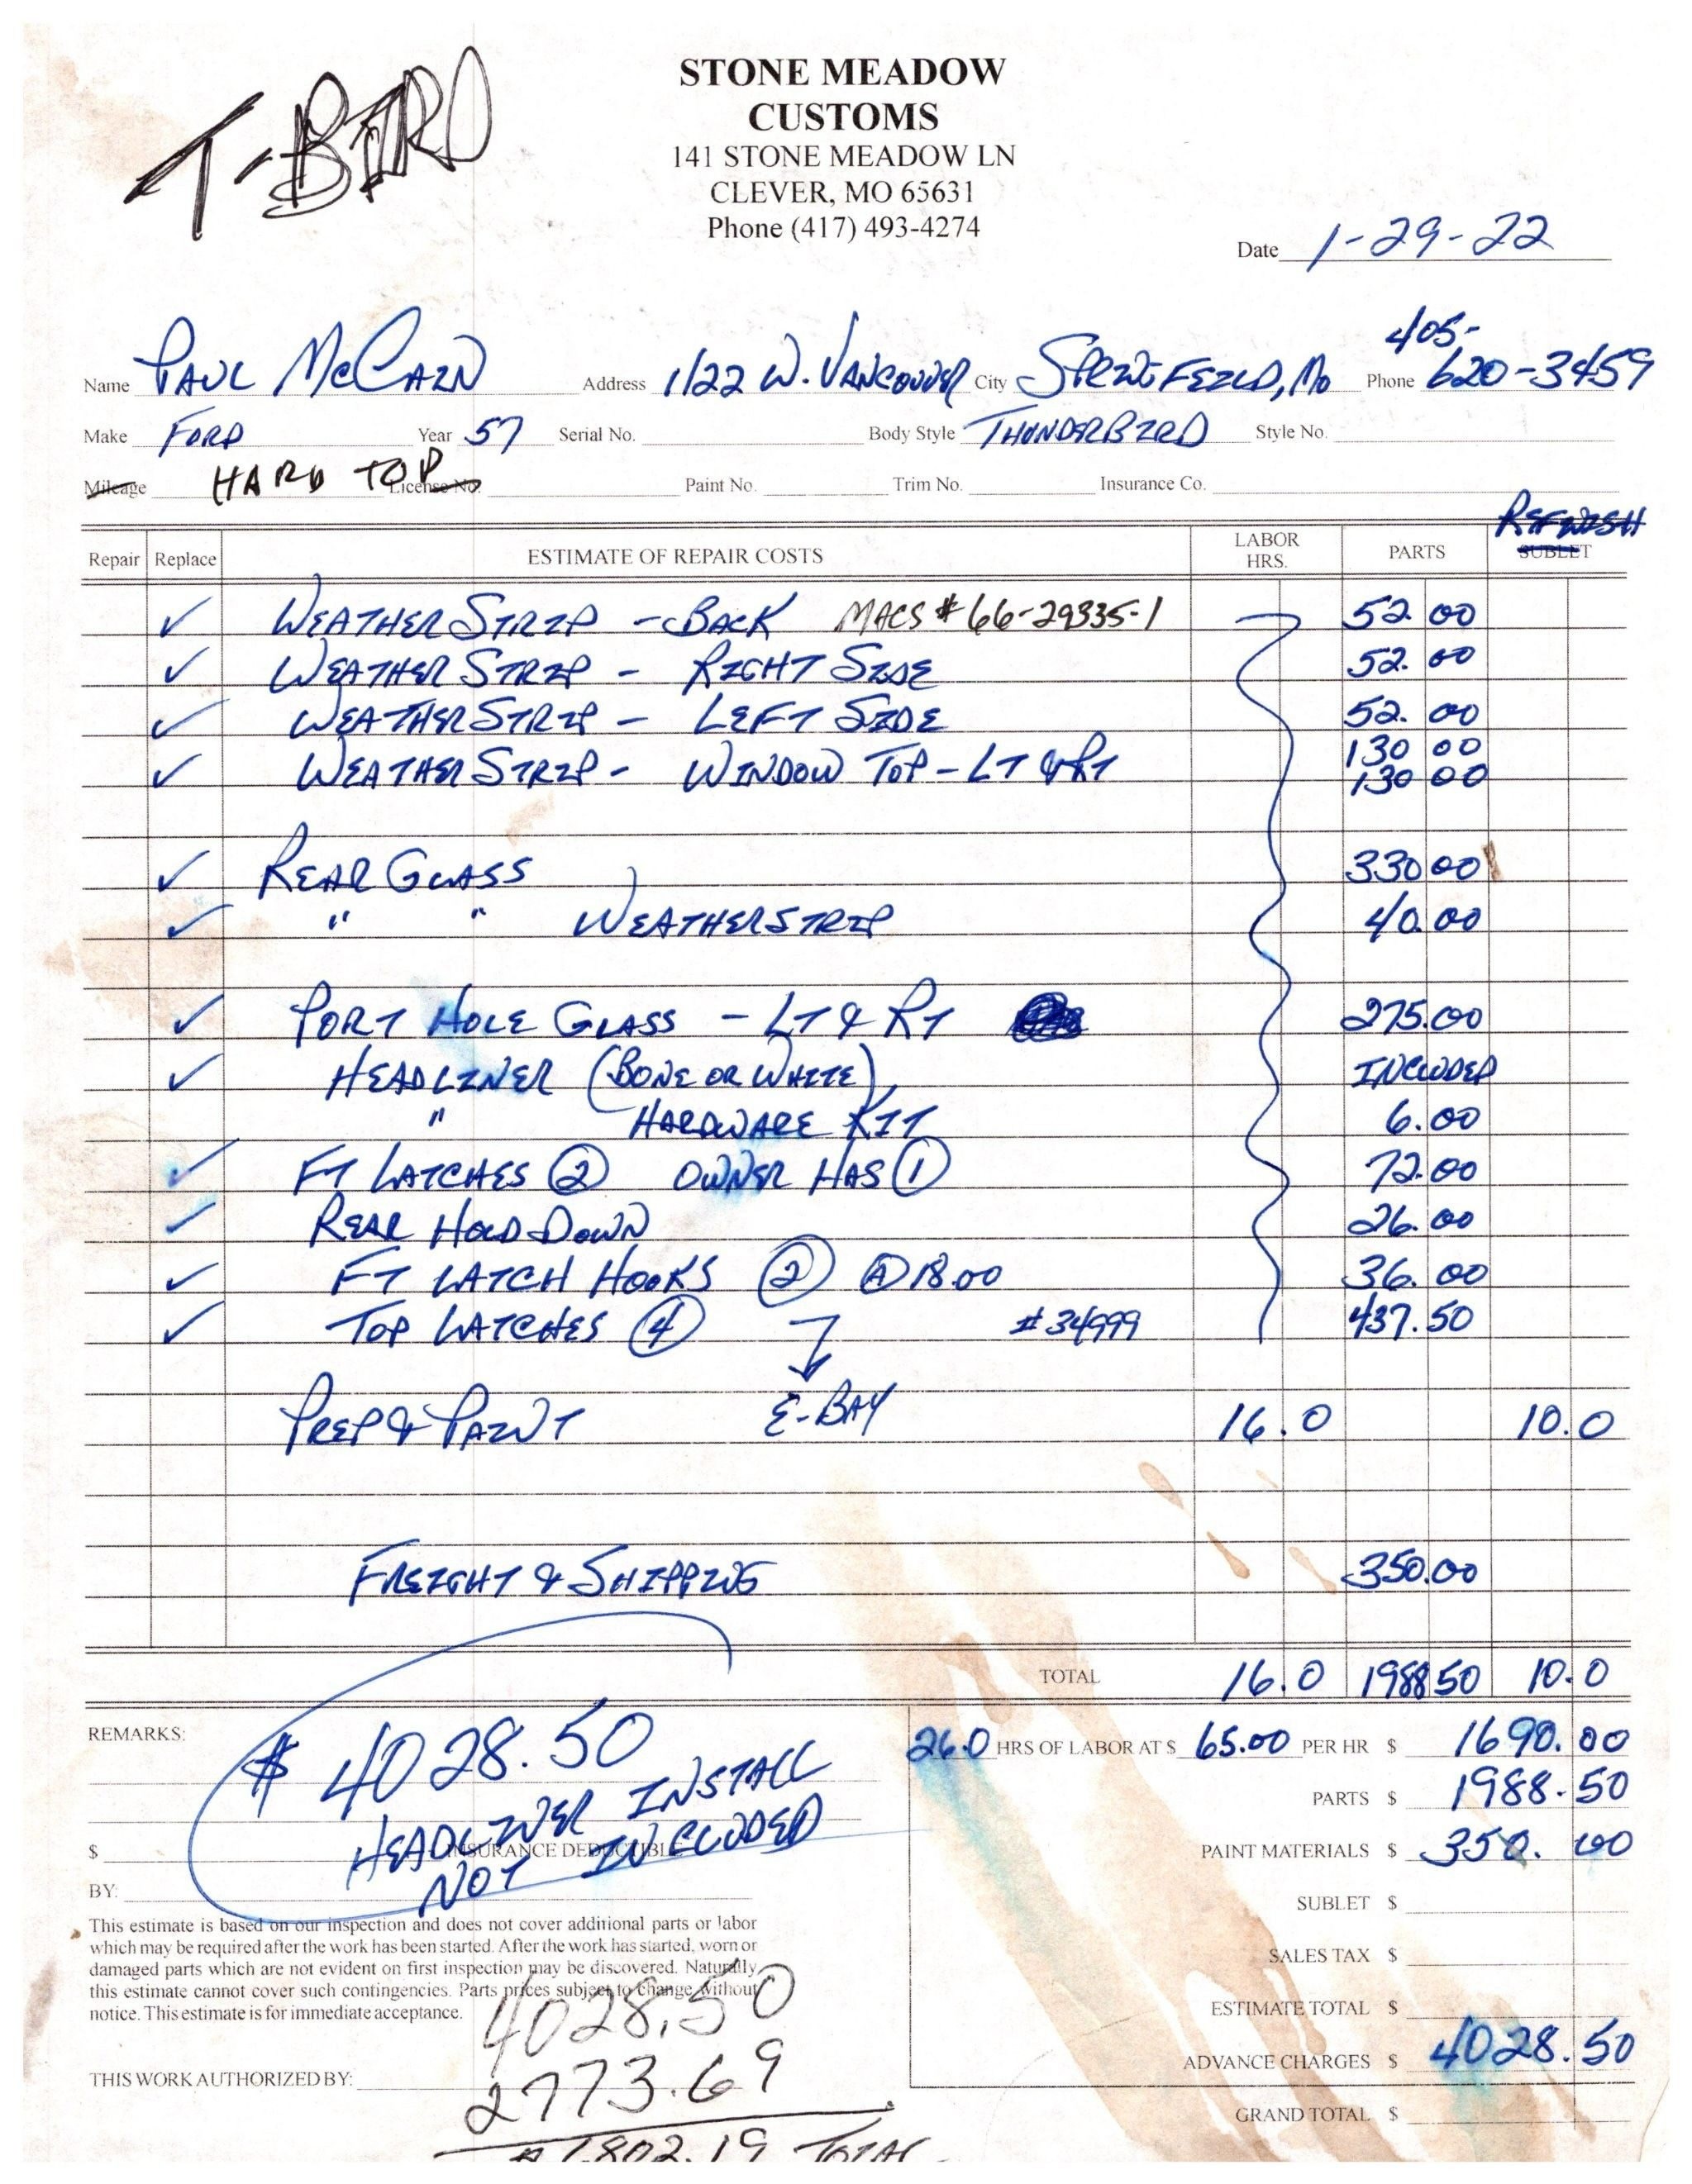 T-BIRD
STONE MEADOW
CUSTOMS
141 STONE MEADOW LN
CLEVER, MO 65631
Phone (417) 493-4274
Date 1-29-22
405-
Name PAUL McCAIN Address 1122 W. VANCOUVER City SPRINGFIELD, MO Phone 620-3459
Make FORD Year 57 Serial No. Body Style THUNDERBIRD Style No.
Mileage HARD TOP License No. Paint No. Trim No. Insurance Co.
REFINISH
Repair Replace ESTIMATE OF REPAIR COSTS LABOR HRS. PARTS SUBLET
✓ WEATHERSTRIP - BACK MACS # 66-29335-1 52.00
✓ WEATHERSTRIP - RIGHT SIDE 52.00
✓ WEATHERSTRIP - LEFT SIDE 52.00
✓ WEATHERSTRIP - WINDOW TOP - LT & RT 130 00
130 00
✓ REAR GLASS 330 00
✓ " " WEATHERSTRIP 40.00
✓ PORT HOLE GLASS - LT & RT 275.00
✓ HEADLINER (BONE OR WHITE) INCLUDED
" HARDWARE KIT 6.00
✓ FT LATCHES (2) OWNER HAS (1) 72.00
✓ REAR HOLD DOWN 26.00
✓ FT LATCH HOOKS (2) @ 18.00 36.00
✓ TOP LATCHES (4) # 34999 437.50
PREP & PAINT E-BAY 16.0 10.0
FREIGHT & SHIPPING 350.00
TOTAL 16.0 1988 50 10.0
REMARKS: $ 4028.50
HEADLINER INSTALL
NOT INCLUDED
$ INSURANCE DEDUCTIBLE
BY:
This estimate is based on our inspection and does not cover additional parts or labor
which may be required after the work has been started. After the work has started, worn or
damaged parts which are not evident on first inspection may be discovered. Naturally
this estimate cannot cover such contingencies. Parts prices subject to change without
notice. This estimate is for immediate acceptance.
THIS WORK AUTHORIZED BY:
4028.50
2773.69
6,802.19 TOTAL
26.0 HRS OF LABOR AT $ 65.00 PER HR $ 1690.00
PARTS $ 1988.50
PAINT MATERIALS $ 350.00
SUBLET $
SALES TAX $
ESTIMATE TOTAL $
ADVANCE CHARGES $ 4028.50
GRAND TOTAL $